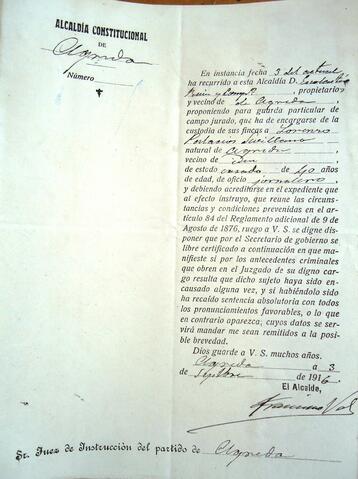 ALCALDÍA CONSTITUCIONAL
DE
Agreda
Número
En instancia fecha 3 del actual
ha recurrido a esta Alcaldía D.
propietarios
y vecino de Agreda
proponiendo para guarda particular de
campo jurado, que ha de encargarse de la
custodia de sus fincas a Lorenzo
Palacios
natural de Agreda
vecino de idem
de estado casado de 40 años
de edad, de oficio jornalero
y debiendo acreditorse en el expediente que
al efecto instruyo, que reune las circuns-
tancias y condiciones prevenidas en el ar-
tículo 84 del Reglamento adicional de 9 de
Agosto de 1876, ruego a V. S. se digne
disponer que por el Secretario de gobierno se
libre certificado a continuación en que ma-
nifieste si por los antecedentes criminales
que obren en el Juzgado de su digno car-
go resulta que dicho sujeto haya sido en-
causado alguna vez, y si habiéndolo sido
ha recaído sentencia absolutoria con todos
los pronunciamientos favorables, o lo que
en contrario aparezca, cuyos datos se ser-
virá mandar me sean remitidos a la posi-
ble brevedad.
Dios guarde a V. S. muchos años.
Agreda a 3
de Sepbre de 1916
El Alcalde,
Francisco
Sr. Juez de Instrucción del partido de Agreda